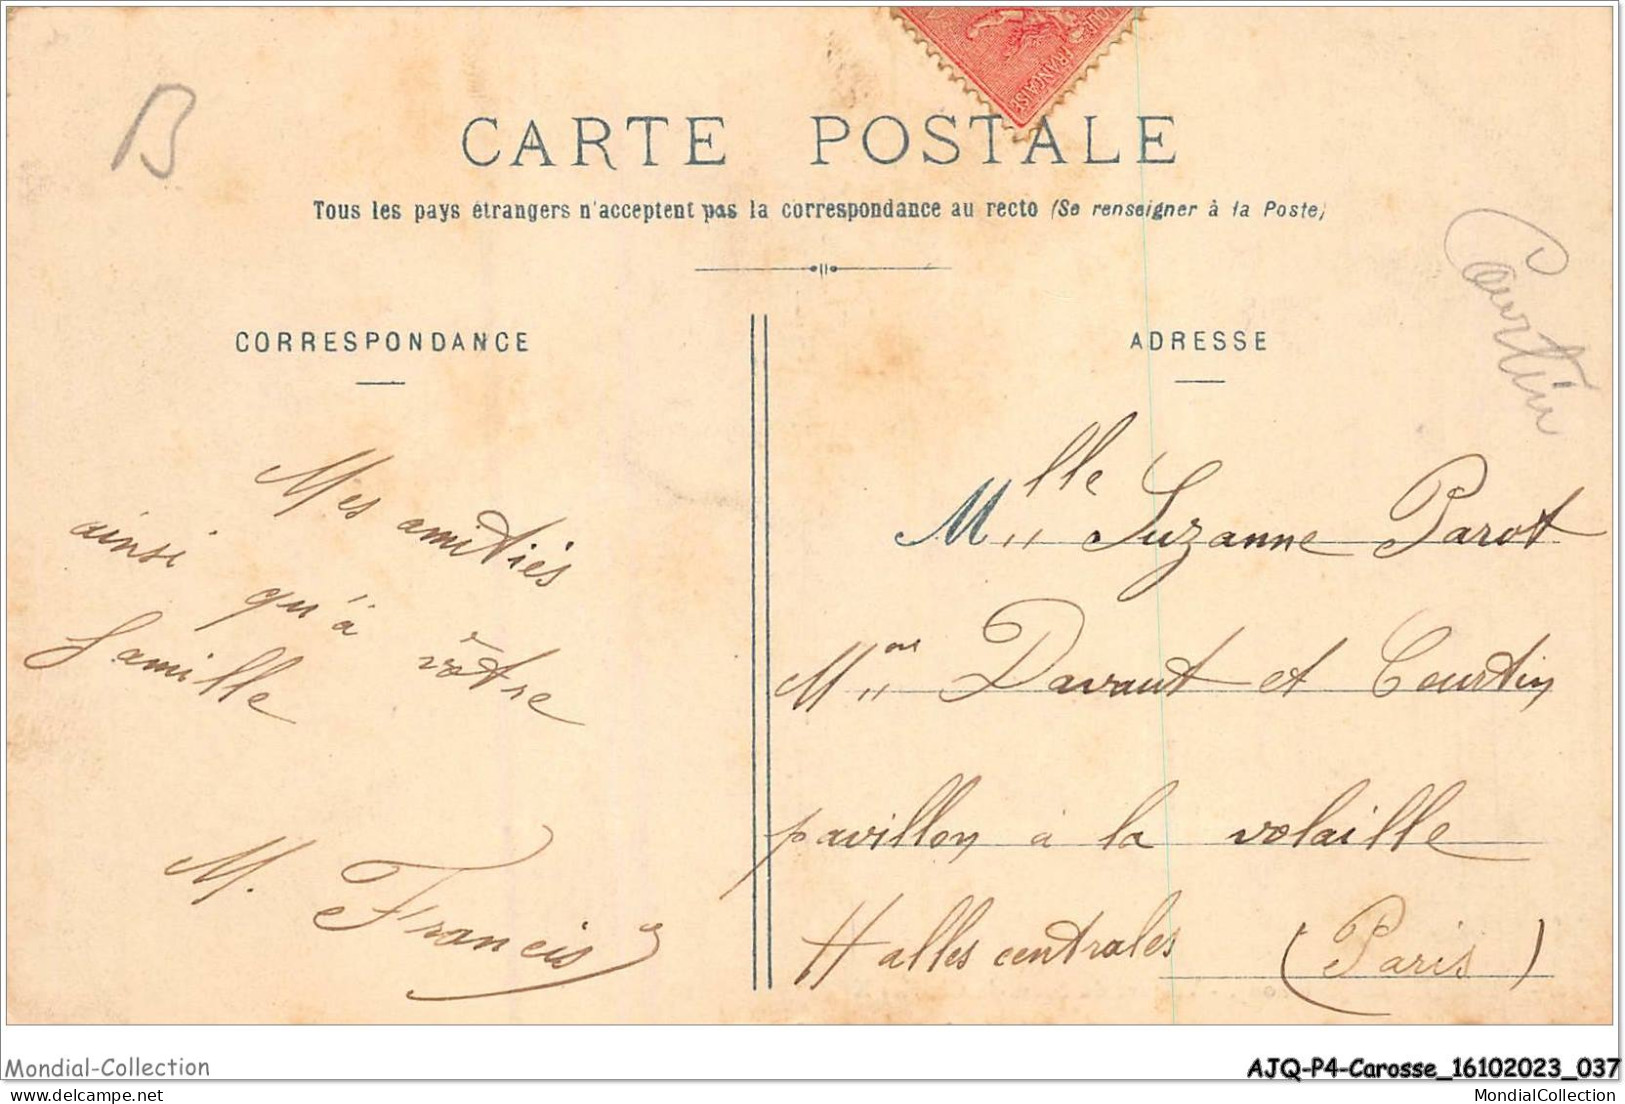 B
FRANÇAISE
CARTE POSTALE
Tous les pays étrangers n'acceptent pas la correspondance au recto (Se renseigner à la Poste)
CORRESPONDANCE
Mes amitiés
ainsi qu'à vôtre
famille
M. Francis
ADRESSE
Courtin
Mlle Suzanne Parot
Mon Davaut et Courtin
pavillon à la volaille
Halles centrales (Paris)
Mondial-Collection
AJQ-P4-Carosse_16102023_037
delcampe.net
MondialCollection